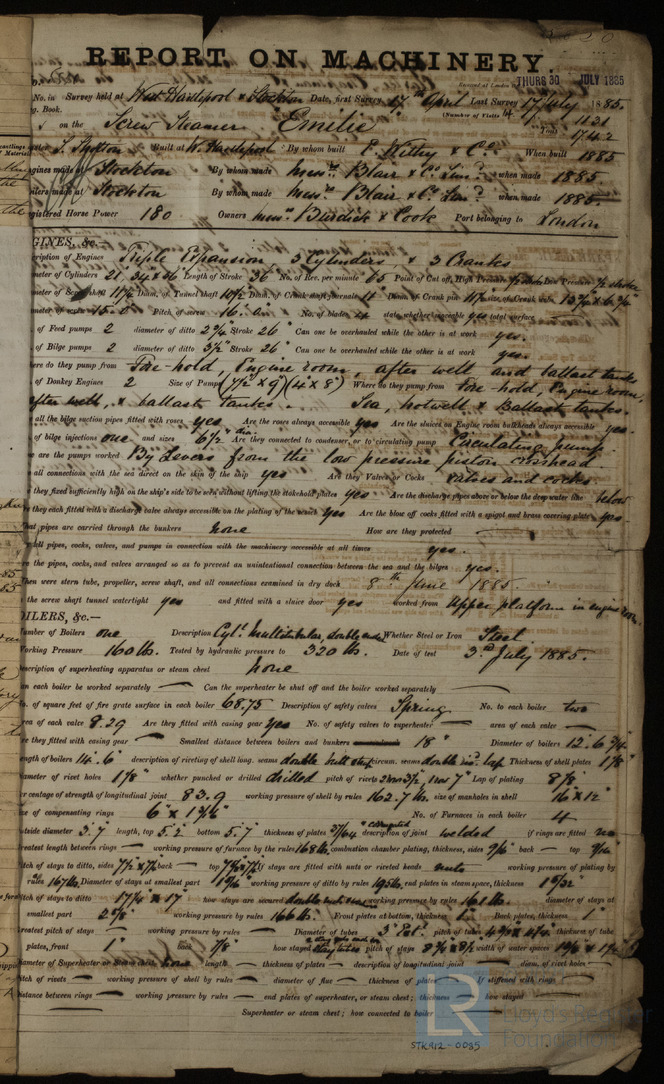 REPORT ON MACHINERY.
Received at London THURS 30 JULY 1885
No. in Survey held at West Hartlepool & Stockton Date, first Survey 17th April Last Survey 17 July 1885.
Book. (Number of Visits
on the Screw Steamer Emilie Tons 1742
Built at W. Hartlepool By whom built E. Withy & Co. When built 1885
gines made at Stockton By whom made Messrs. Blair & Co. Limd. when made 1885
oilers made at Stockton By whom made Messrs. Blair & Co. Limd. when made 1885
gistered Horse Power 180 Owners Messrs. Burdick & Cook Port belonging to London
GINES, &c.
cription of Engines Triple Expansion 3 Cylinders & 3 Cranks
meter of Cylinders 21, 34 & 56 Length of Stroke 36" No. of Rev. per minute 65 Point of Cut off, High Pressure Low Pressure ½ stroke
meter of Screw shaft 11½ Diam. of Tunnel shaft 10½ Diam. of Crank shaft journals 11" Diam. of Crank pin 11½ size of Crank webs
meter of screw 15.0 Pitch of screw 16.0 No. of blades 4 state whether moveable yes total surface
of Feed pumps 2 diameter of ditto 2¾ Stroke 26" Can one be overhauled while the other is at work yes.
of Bilge pumps 2 diameter of ditto 3½ Stroke 26" Can one be overhauled while the other is at work yes.
ere do they pump from Fore hold, Engine room, after well and ballast tanks
of Donkey Engines 2 Size of Pumps (7½ x 9) (4 x 8) Where do they pump from Fore hold, Engine room,
after well, & ballast tanks. Sea, hotwell & Ballast tanks.
all the bilge suction pipes fitted with roses yes Are the roses always accessible yes Are the sluices on Engine room bulkheads always accessible yes.
of bilge injections one and sizes 6½" dia. Are they connected to condenser, or to circulating pump Circulating pump.
ow are the pumps worked By levers from the low pressure piston crosshead
all connections with the sea direct on the skin of the ship yes Are they Valves or Cocks valves and cocks.
e they fixed sufficiently high on the ship's side to be seen without lifting the stokehold plates yes Are the discharge pipes above or below the deep water line below
e they each fitted with a discharge valve always accessible on the plating of the vessel yes Are the blow off cocks fitted with a spigot and brass covering plate yes
hat pipes are carried through the bunkers none How are they protected
all pipes, cocks, valves, and pumps in connection with the machinery accessible at all times yes.
e the pipes, cocks, and valves arranged so as to prevent an unintentional connection between the sea and the bilges yes.
hen were stern tube, propeller, screw shaft, and all connections examined in dry dock 8th June 1885
the screw shaft tunnel watertight yes and fitted with a sluice door yes worked from Upper platform in engine room.
OILERS, &c.—
umber of Boilers one Description Cyl. Multitubular, double ended Whether Steel or Iron Steel
orking Pressure 160 lbs. Tested by hydraulic pressure to 320 lbs. Date of test 3rd July 1885.
escription of superheating apparatus or steam chest none
an each boiler be worked separately — Can the superheater be shut off and the boiler worked separately —
o. of square feet of fire grate surface in each boiler 68.75 Description of safety valves Spring No. to each boiler two
rea of each valve 8.29 Are they fitted with easing gear yes No. of safety valves to superheater — area of each valve —
re they fitted with easing gear — Smallest distance between boilers and bunkers 18" Diameter of boilers 12.6¾
ength of boilers 14.6" description of riveting of shell long. seams double butt strap circum. seams double riv. lap Thickness of shell plates 1⅛
iameter of rivet holes 1⅛" whether punched or drilled drilled pitch of rivets Lap of plating 8⅞
er centage of strength of longitudinal joint 83.9 working pressure of shell by rules 162.7 lb. size of manholes in shell 16 x 12"
ze of compensating rings No. of Furnaces in each boiler 4
utside diameter 3.7 length, top 5.2 bottom 5.7 thickness of plates 37/64 corrugated description of joint welded if rings are fitted no
reatest length between rings — working pressure of furnace by the rules 168 lb. combustion chamber plating, thickness, sides 9/16 back — top 9/16
itch of stays to ditto, sides 7½ x 7½ back — top 7½ x 7½ If stays are fitted with nuts or riveted heads nuts working pressure of plating by
rules 167 lb. Diameter of stays at smallest part working pressure of ditto by rules 195 lb. end plates in steam space, thickness
itch of stays to ditto 17¼ x 17" how stays are secured double nuts working pressure by rules 161 lb. diameter of stays at
smallest part 2⅝" working pressure by rules 166 lb. Front plates at bottom, thickness 1" Back plates, thickness 1"
reatest pitch of stays — working pressure by rules — Diameter of tubes 3" pitch of tubes thickness of tube
plates, front 1" back ⅞ how stayed stay tubes pitch of stays width of water spaces
iameter of Superheater or Steam chest none length — thickness of plates — description of longitudinal joint — diam. of rivet holes —
itch of rivets — working pressure of shell by rules — diameter of flue — thickness of plates — If stiffened with rings —
istance between rings — working pressure by rules — end plates of superheater, or steam chest; thickness — how stayed
Superheater or steam chest; how connected to boiler
LR
Lloyd's Register
Foundation
STK912-0035